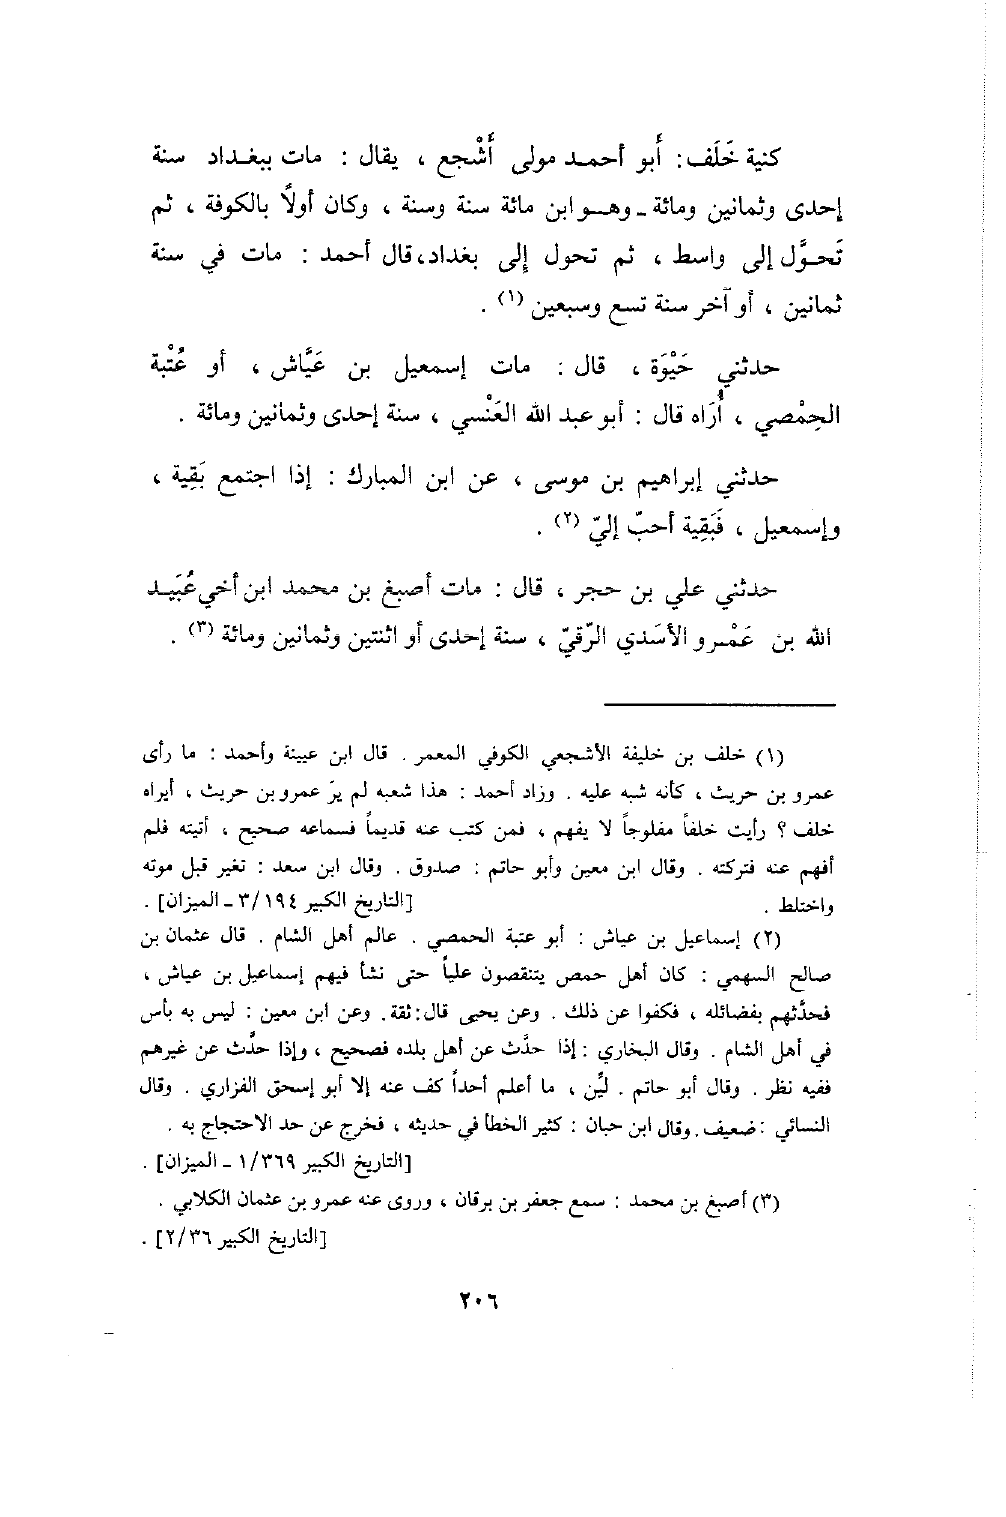 كنية خَلَف: أَبو أحمد مولى أَشْجع ، يقال : مات ببغداد سنة
إحدى وثمانين ومائة ـ وهو ابن مائة سنة وسنة ، وكان أولاً بالكوفة ، ثم
تَحوَّل إلى واسط ، ثم تحول إلى بغداد، قال أحمد : مات في سنة
ثمانين ، أو آخر سنة تسع وسبعين (١) .
حدثني حَيْوَة ، قال : مات إسمعيل بن عَيَّاش ، أو عُتْبة
الحِمْصي ، أُرَاه قال : أبو عبد الله العَنْسي ، سنة إحدى وثمانين ومائة .
حدثني إبراهيم بن موسى ، عن ابن المبارك : إذا اجتمع بَقِية ،
وإسمعيل ، فَبَقِية أحبّ إليّ (٢) .
حدثني علي بن حجر ، قال : مات أصبغ بن محمد ابن أخي عُبَيد
الله بن عَمْرو الأسَدي الرّقيّ ، سنة إحدى أو اثنتين وثمانين ومائة (٣) .
(١) خلف بن خليفة الأشجعي الكوفي المعمر . قال ابن عيينة وأحمد : ما رأى
عمرو بن حريث ، كأنه شبه عليه . وزاد أحمد : هذا شعبه لم يرَ عمرو بن حريث ، أيراه
خلف ؟ رأيت خلفاً مفلوجاً لا يفهم ، فمن كتب عنه قديماً فسماعه صحيح ، أتيته فلم
أفهم عنه فتركته . وقال ابن معين وأبو حاتم : صدوق . وقال ابن سعد : تغير قبل موته
واختلط . [التاريخ الكبير ٣/١٩٤ ـ الميزان] .
(٢) إسماعيل بن عياش : أبو عتبة الحمصي . عالم أهل الشام . قال عثمان بن
صالح السهمي : كان أهل حمص يتنقصون علياً حتى نشأ فيهم إسماعيل بن عياش ،
فحدَّثهم بفضائله ، فكفوا عن ذلك . وعن يحيى قال: ثقة. وعن ابن معين : ليس به بأس
في أهل الشام . وقال البخاري : إذا حدَّث عن أهل بلده فصحيح ، وإذا حدَّث عن غيرهم
ففيه نظر . وقال أبو حاتم . ليِّن ، ما أعلم أحداً كف عنه إلا أبو إسحق الفزاري . وقال
النسائي : ضعيف. وقال ابن حبان : كثير الخطأ في حديثه ، فخرج عن حد الاحتجاج به .
[التاريخ الكبير ١/٣٦٩ ـ الميزان] .
(٣) أصبغ بن محمد : سمع جعفر بن برقان ، وروى عنه عمرو بن عثمان الكلابي .
[التاريخ الكبير ٢/٣٦] .
٢٠٦